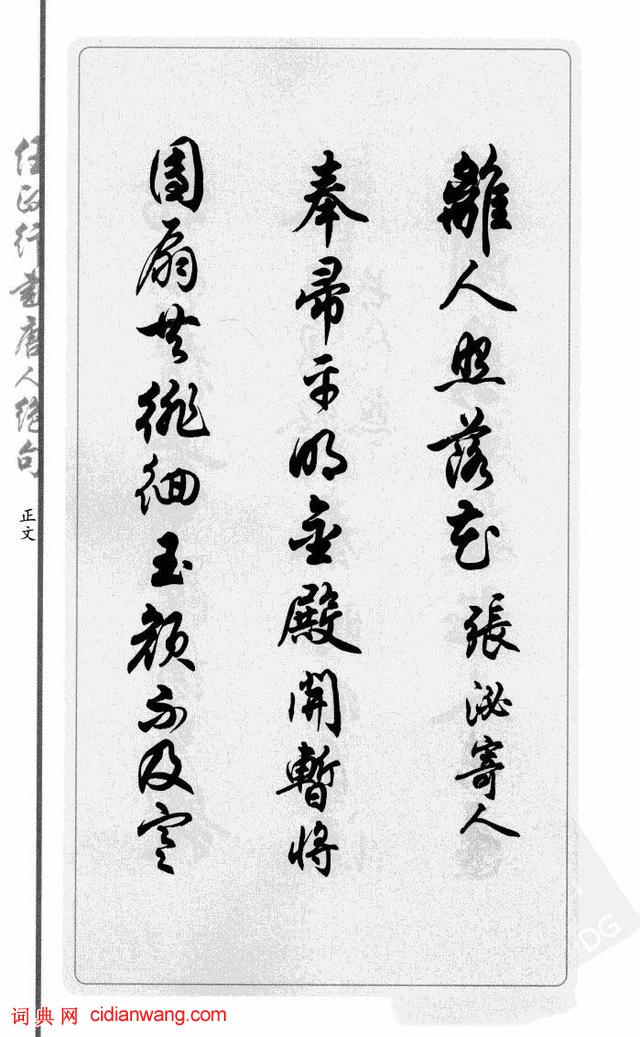 離人照落花 張泌寄人
奉帚平明金殿開暫將
團扇共徘徊玉顏不及寒
任政行書唐人絕句
正文
词典网 cidianwang.com
DG